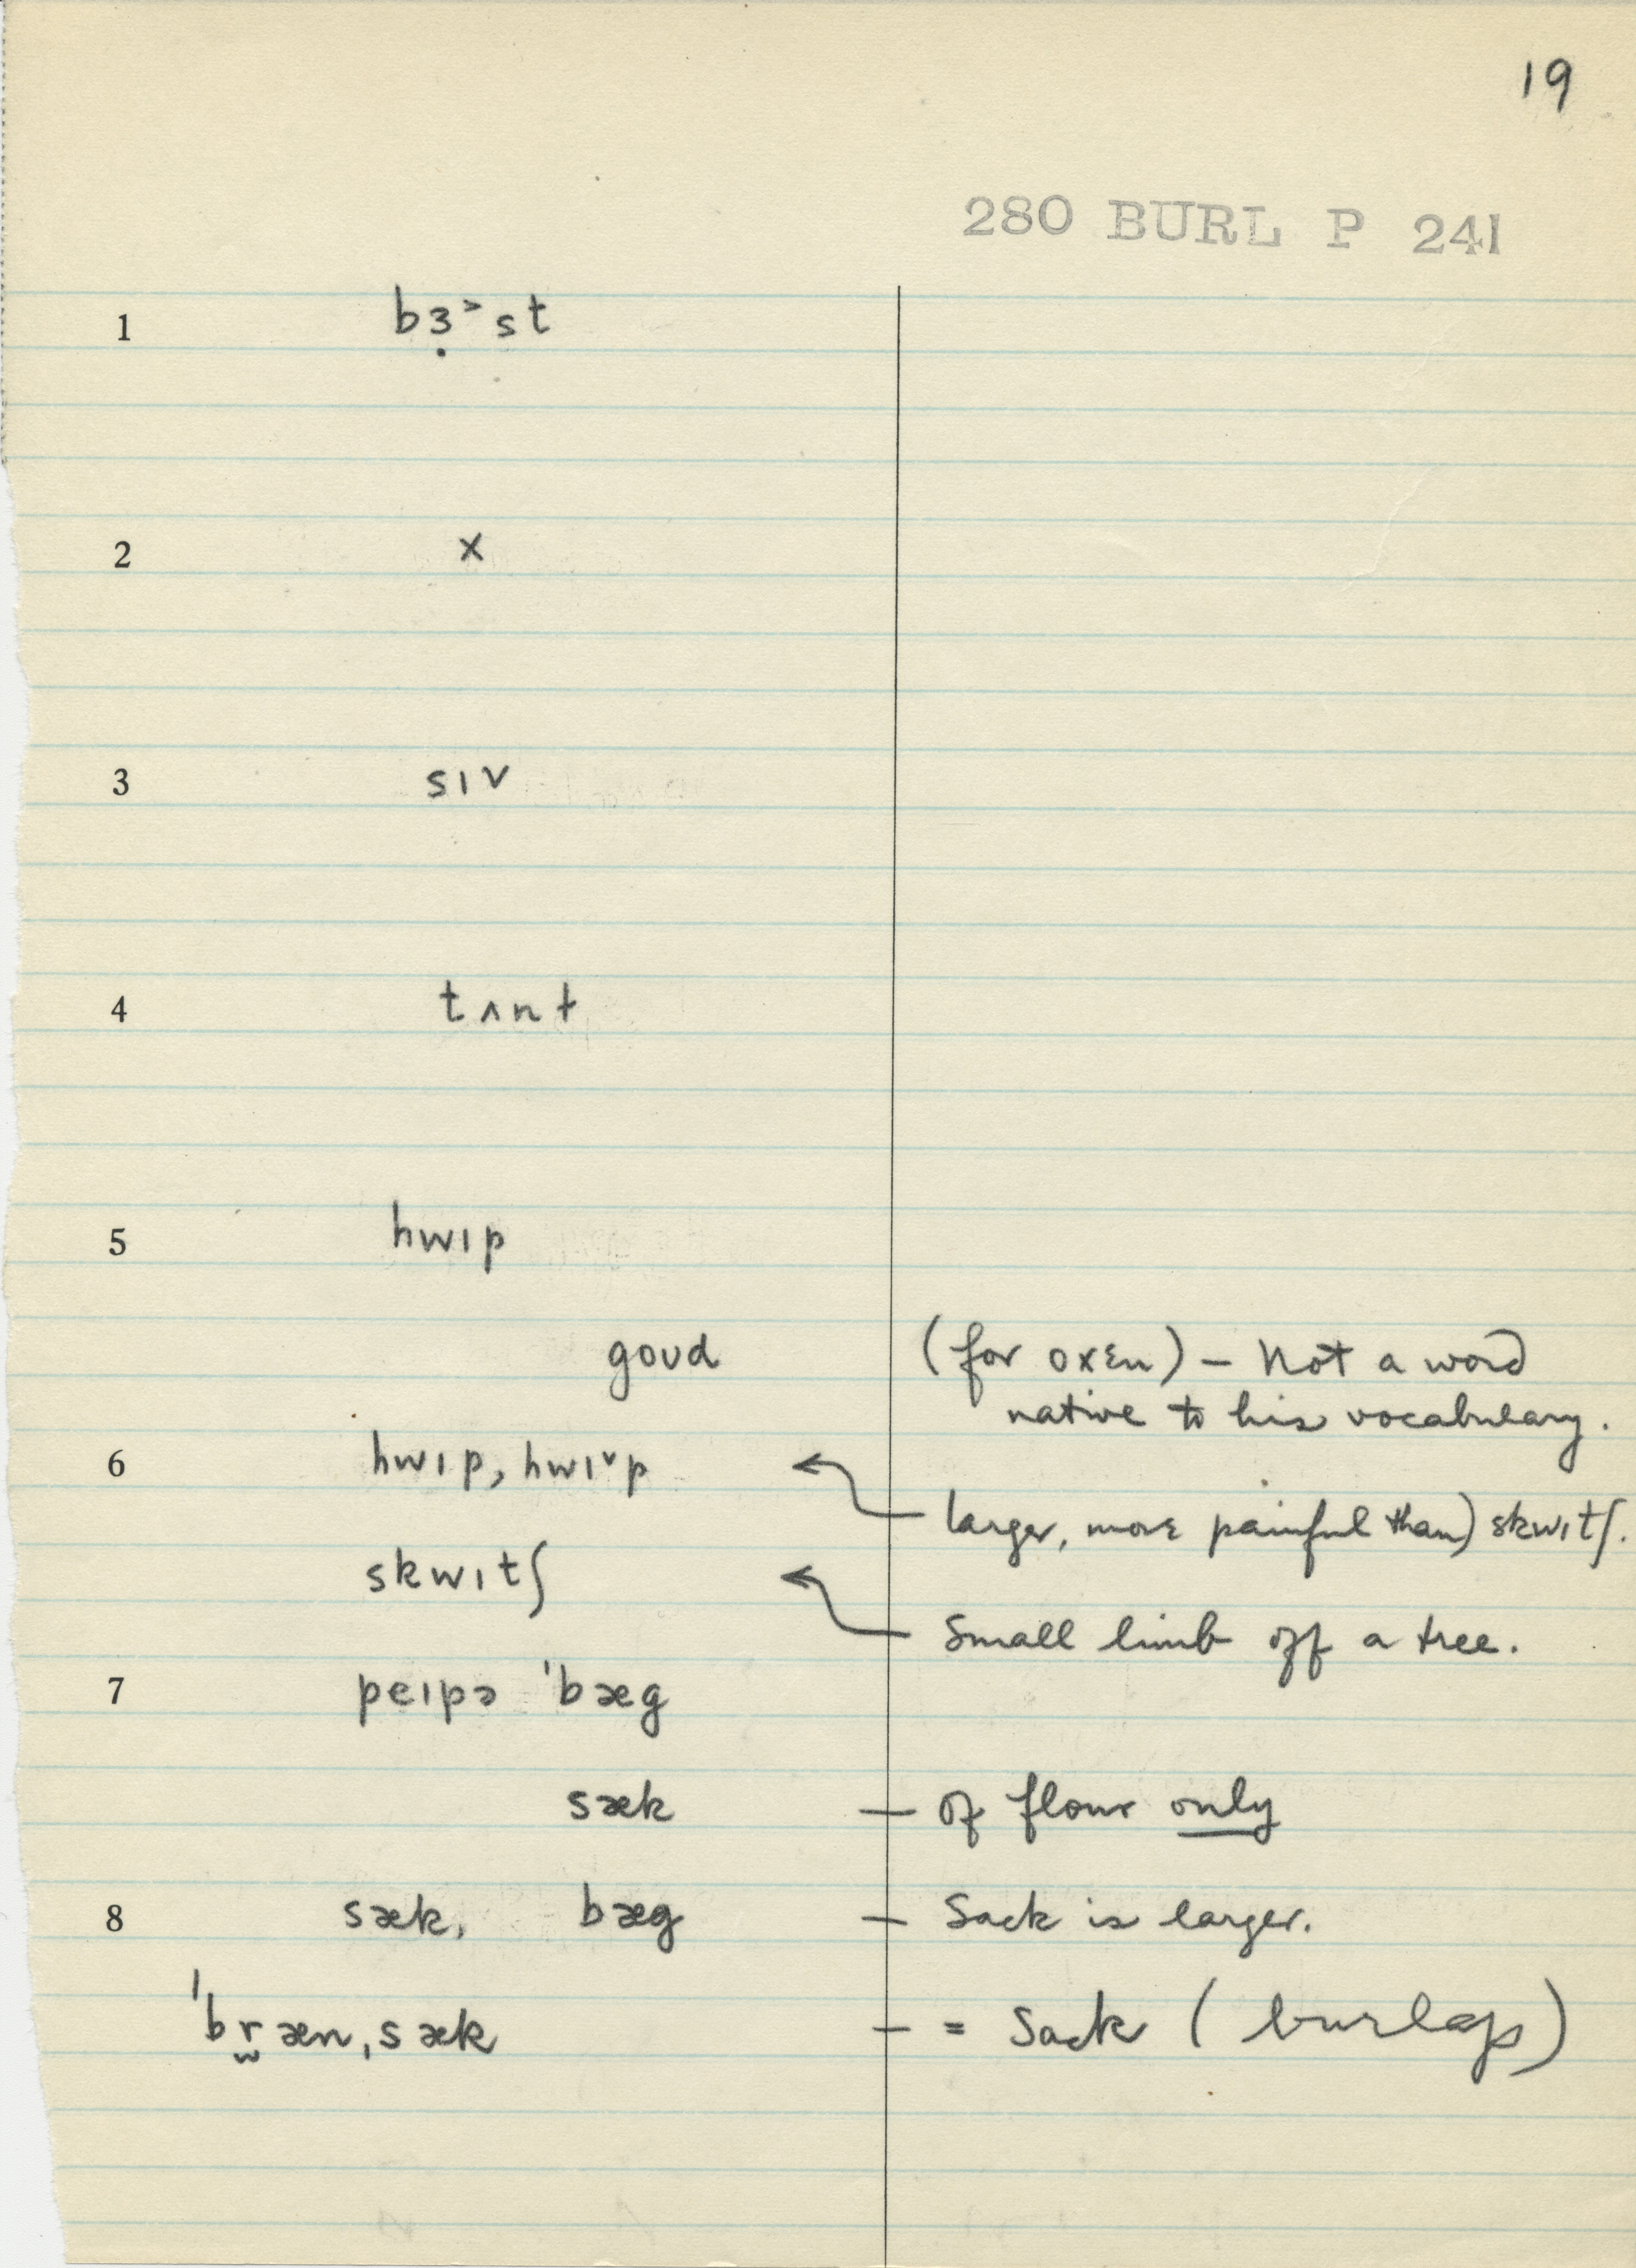 19
280 BURL P 241
1 bɜ̣˃st
2 x
3 sɪv
4 tʌnt
5 hwɪp
goʊd (for oxen) – Not a word
native to his vocabulary.
6 hwɪp, hwɪ˅p
larger, more painful than) skwɪtʃ.
skwɪtʃ
Small limb off a tree.
7 peɪpə ˈbæg
sæk — of flour only
8 sæk, bæg — Sack is larger.
ˈbr̫æn ˌsæk — = Sack (burlap)